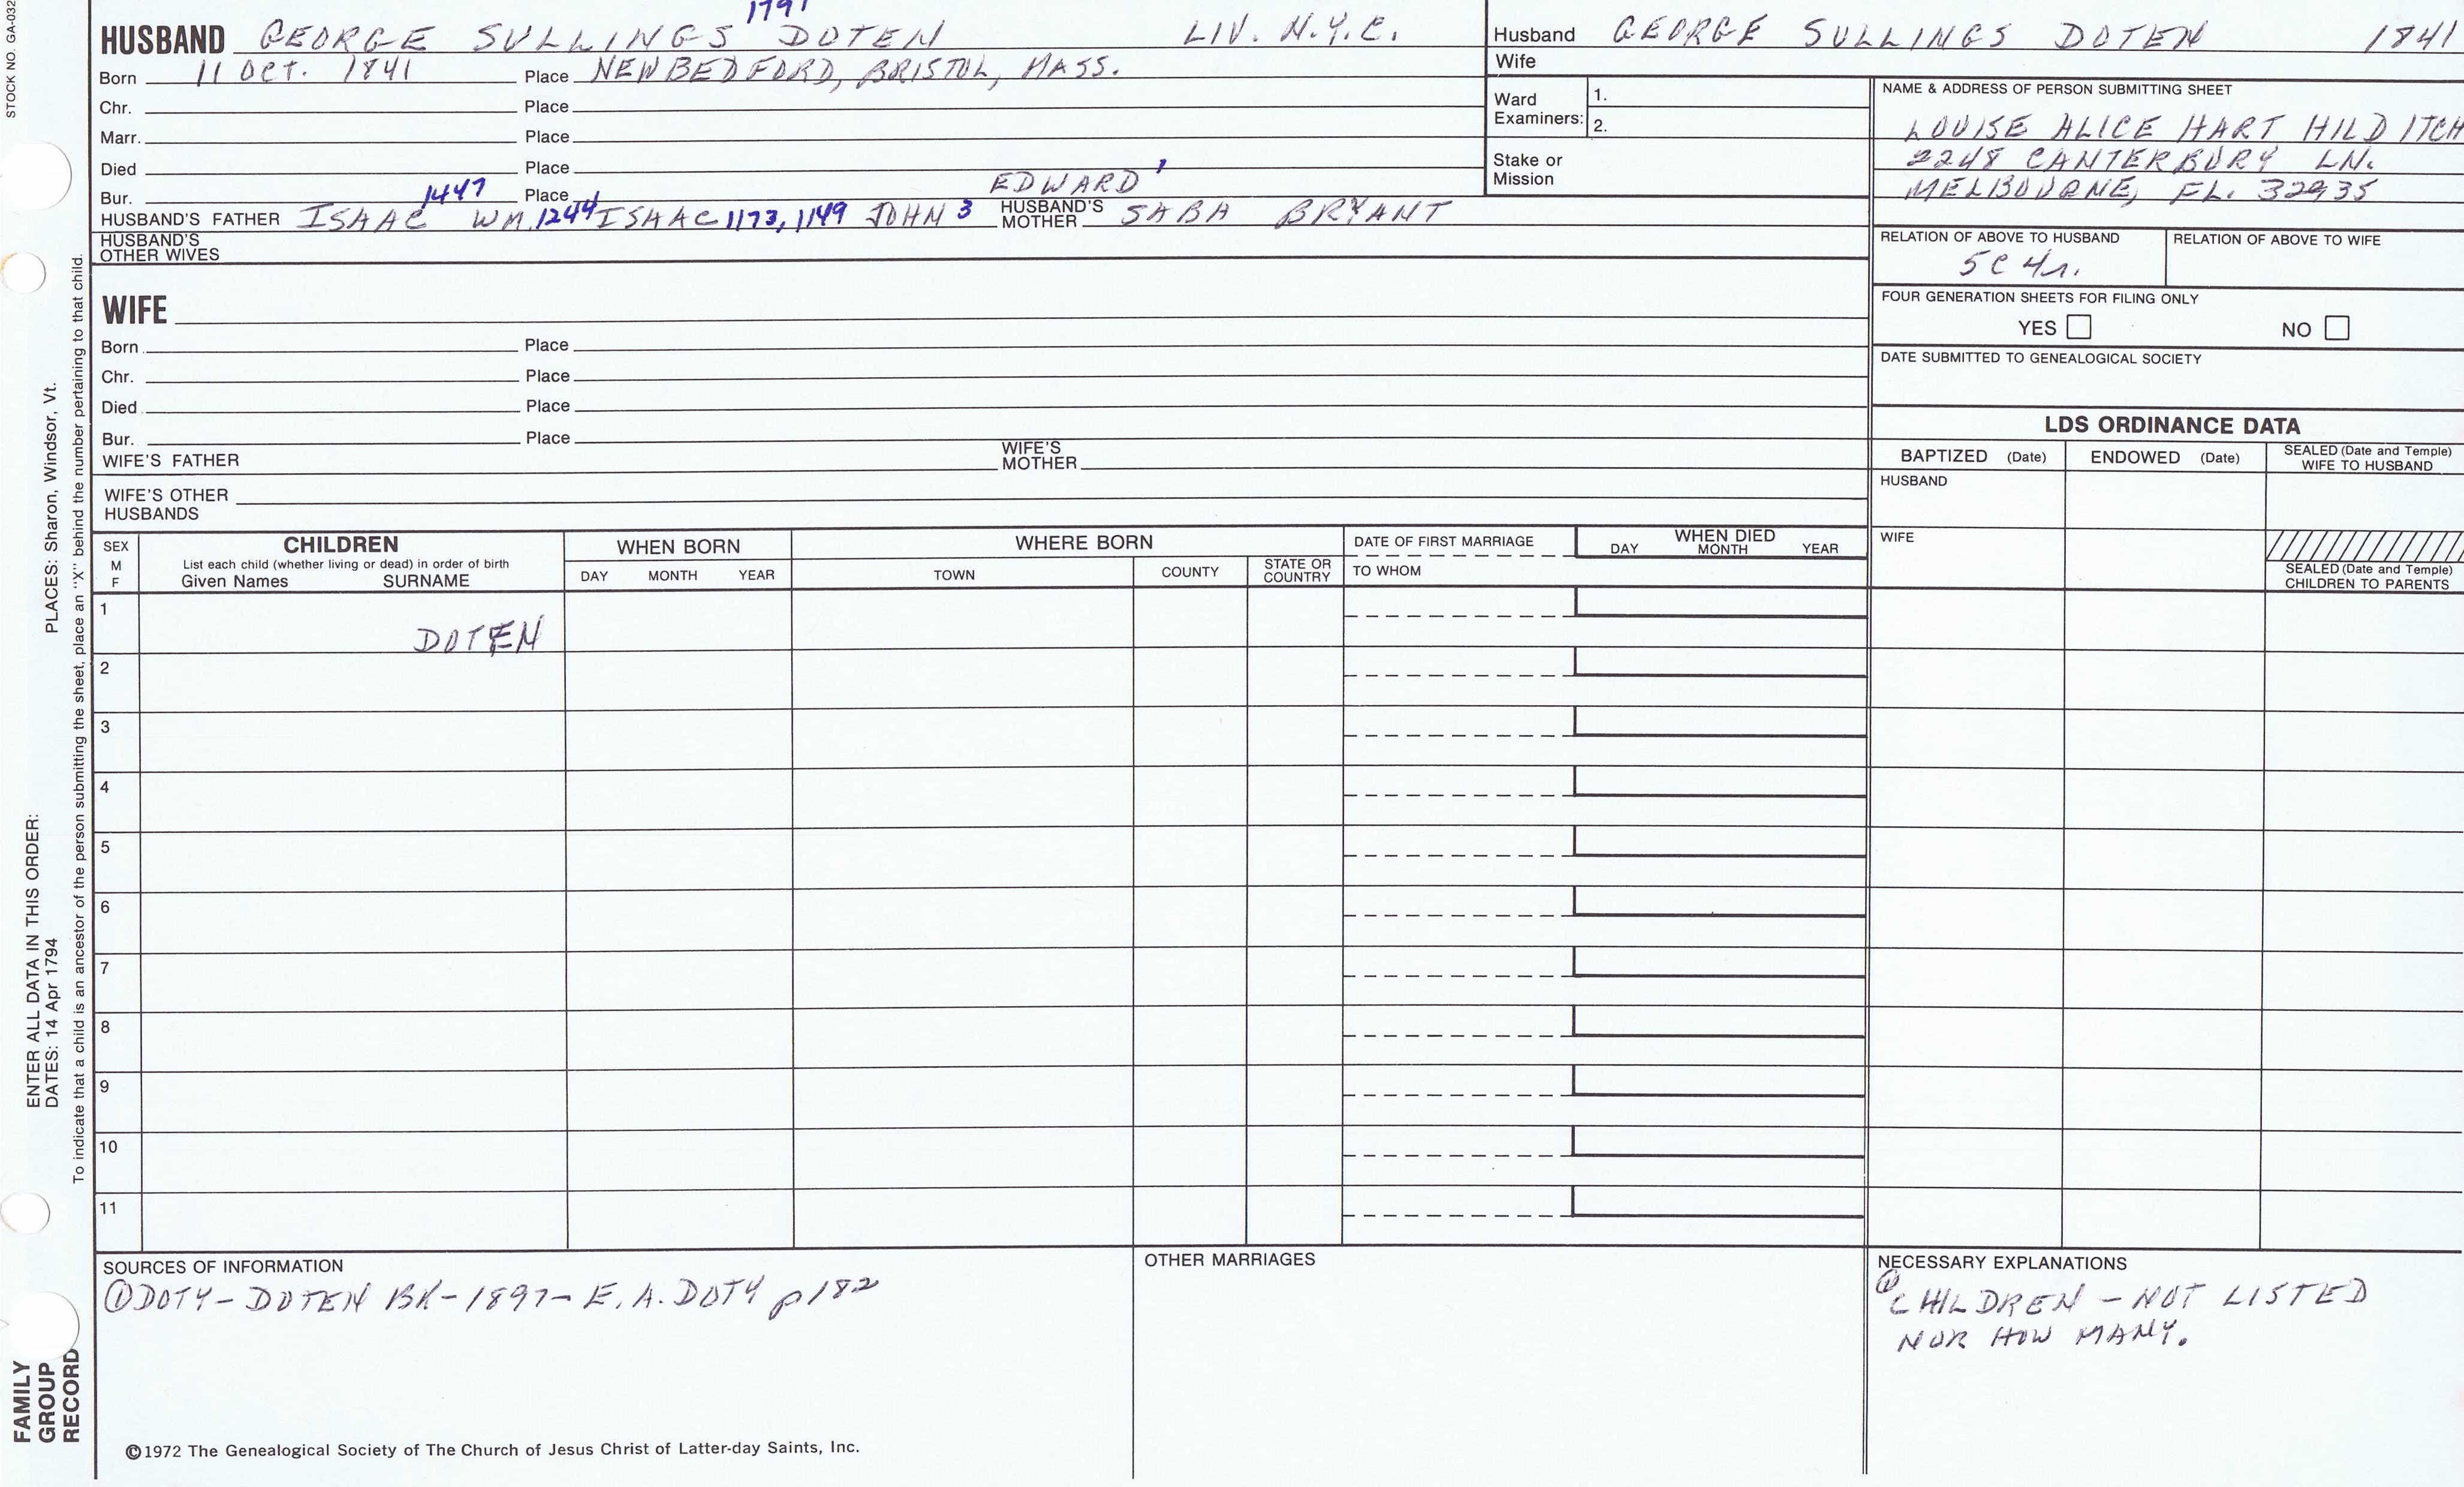 STOCK NO. GA-032
1791
HUSBAND GEORGE SULLINGS DOTEN LIV. N.Y.C.
Born 11 OCT. 1841 Place NEW BEDFORD, BRISTOL, MASS.
Chr. Place
Marr. Place
Died Place
Bur. Place
1447 1244 EDWARD 1
HUSBAND'S FATHER ISAAC WM. ISAAC 1173, 1149 JOHN 3 HUSBAND'S MOTHER SABA BRYANT
HUSBAND'S OTHER WIVES
WIFE
Born Place
Chr. Place
Died Place
Bur. Place
WIFE'S FATHER WIFE'S MOTHER
WIFE'S OTHER HUSBANDS
Husband GEORGE SULLINGS DOTEN 1841
Wife
Ward Examiners: 1.
2.
Stake or Mission
NAME & ADDRESS OF PERSON SUBMITTING SHEET
LOUISE ALICE HART HILDITCH
2248 CANTERBURY LN.
MELBOURNE, FL. 32935
RELATION OF ABOVE TO HUSBAND RELATION OF ABOVE TO WIFE
5C 4r.
FOUR GENERATION SHEETS FOR FILING ONLY
YES NO
DATE SUBMITTED TO GENEALOGICAL SOCIETY
LDS ORDINANCE DATA
BAPTIZED (Date) ENDOWED (Date) SEALED (Date and Temple) WIFE TO HUSBAND
HUSBAND
WIFE
SEALED (Date and Temple) CHILDREN TO PARENTS
SEX M F
CHILDREN
List each child (whether living or dead) in order of birth
Given Names SURNAME
WHEN BORN
DAY MONTH YEAR
WHERE BORN
TOWN COUNTY STATE OR COUNTRY
DATE OF FIRST MARRIAGE
TO WHOM
WHEN DIED
DAY MONTH YEAR
1 DOTEN
2
3
4
5
6
7
8
9
10
11
SOURCES OF INFORMATION
① DOTY - DOTEN BK - 1897 - E. A. DOTY p 182
OTHER MARRIAGES
NECESSARY EXPLANATIONS
① CHILDREN - NOT LISTED
NOR HOW MANY.
©1972 The Genealogical Society of The Church of Jesus Christ of Latter-day Saints, Inc.
FAMILY GROUP RECORD
ENTER ALL DATA IN THIS ORDER:
DATES: 14 Apr 1794 PLACES: Sharon, Windsor, Vt.
To indicate that a child is an ancestor of the person submitting the sheet, place an "X" behind the number pertaining to that child.